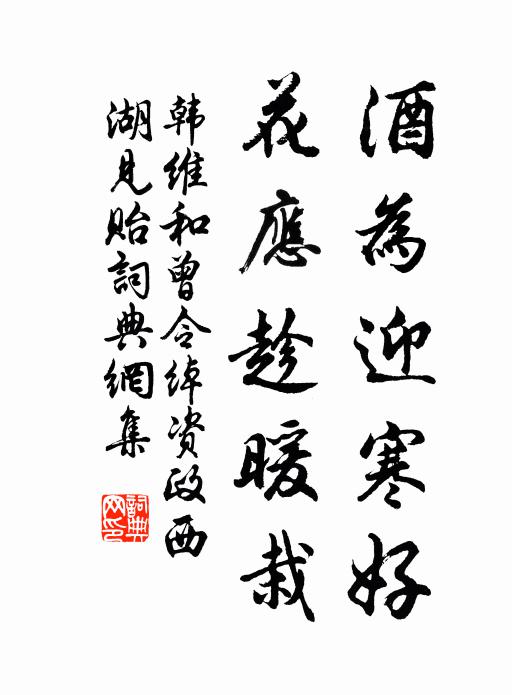 酒為迎寒好
花應趁暖栽
韩維和曾令綽資政西
湖見貽詞典網集
詞典
网印